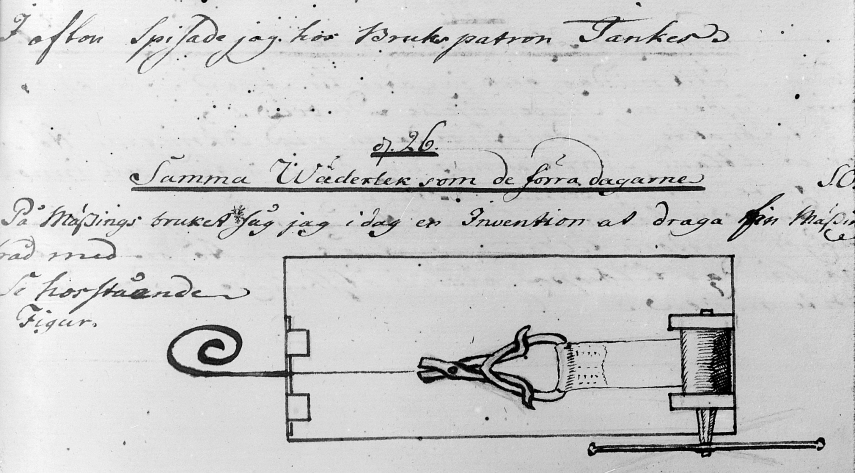 I afton Spisade jag hos Bruks patron Tankes
d. 26.
Samma Wäderlek som de förra dagarne
På Mäßings bruket såg jag i dag en Invention at draga fin Mäßin
råd med
Se hosstående
Figur.